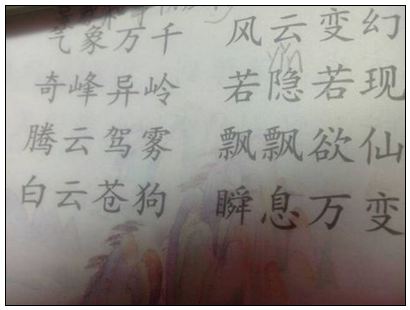 气象万千 风云变幻
奇峰异岭 若隐若现
腾云驾雾 飘飘欲仙
白云苍狗 瞬息万变